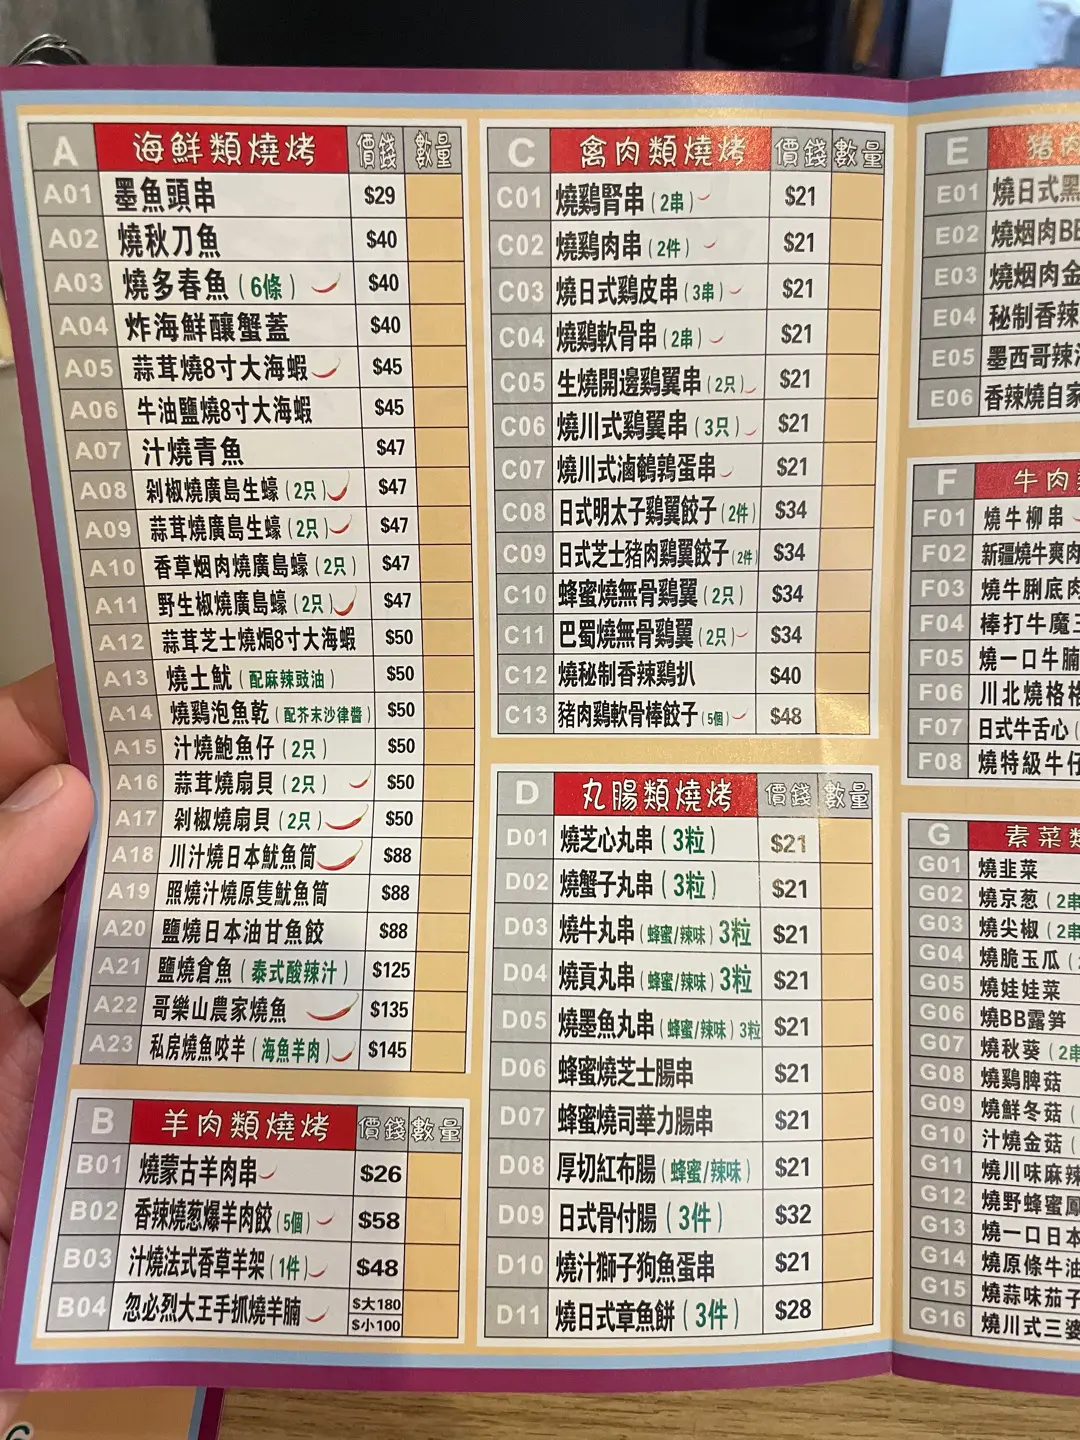 A 海鮮類燒烤 價錢 數量
A01 墨魚頭串 $29
A02 燒秋刀魚 $40
A03 燒多春魚(6條) $40
A04 炸海鮮釀蟹蓋 $40
A05 蒜茸燒8寸大海蝦 $45
A06 牛油鹽燒8寸大海蝦 $45
A07 汁燒青魚 $47
A08 剁椒燒廣島生蠔(2只) $47
A09 蒜茸燒廣島生蠔(2只) $47
A10 香草烟肉燒廣島蠔(2只 $47
A11 野生椒燒廣島蠔(2只) $47
A12 蒜茸芝士燒焗8寸大海蝦 $50
A13 燒土魷(配麻辣豉油) $50
A14 燒鷄泡魚乾(配芥末沙律醬) $50
A15 汁燒鮑魚仔(2只) $50
A16 蒜茸燒扇貝(2只) $50
A17 剁椒燒扇貝(2只) $50
A18 川汁燒日本魷魚筒 $88
A19 照燒汁燒原隻魷魚筒 $88
A20 鹽燒日本油甘魚鮫 $88
A21 鹽燒倉魚(泰式酸辣汁) $125
A22 哥樂山農家燒魚 $135
A23 私房燒魚咬羊(海魚羊肉) $145
B 羊肉類燒烤 價錢 數量
B01 燒蒙古羊肉串 $26
B02 香辣燒葱爆羊肉餃(5個) $58
B03 汁燒法式香草羊架(1件) $48
B04 忽必烈大王手抓燒羊腩 $大180
$小100
C 禽肉類燒烤 價錢 數量
C01 燒鷄腎串(2串) $21
C02 燒鷄肉串(2件) $21
C03 燒日式鷄皮串(3串) $21
C04 燒鷄軟骨串(2串) $21
C05 生燒開邊鷄翼串(2只) $21
C06 燒川式鷄翼串(3只) $21
C07 燒川式滷鵪鶉蛋串 $21
C08 日式明太子鷄翼餃子(2件) $34
C09 日式芝士豬肉鷄翼餃子(2件) $34
C10 蜂蜜燒無骨鷄翼(2只) $34
C11 巴蜀燒無骨鷄翼(2只) $34
C12 燒秘制香辣鷄扒 $40
C13 豬肉鷄軟骨棒餃子(5個) $48
D 丸腸類燒烤 價錢 數量
D01 燒芝心丸串(3粒) $21
D02 燒蟹子丸串(3粒) $21
D03 燒牛丸串(蜂蜜/辣味)3粒 $21
D04 燒貢丸串(蜂蜜/辣味)3粒 $21
D05 燒墨魚丸串(蜂蜜/辣味)3粒 $21
D06 蜂蜜燒芝士腸串 $21
D07 蜂蜜燒司華力腸串 $21
D08 厚切紅布腸(蜂蜜/辣味) $21
D09 日式骨付腸(3件) $32
D10 燒汁獅子狗魚蛋串 $21
D11 燒日式章魚餅(3件) $28
E 猪肉
E01 燒日式黑
E02 燒烟肉BB
E03 燒烟肉金
E04 秘制香辣
E05 墨西哥辣
E06 香辣燒自家
F 牛肉
F01 燒牛柳串
F02 新疆燒牛爽肉
F03 燒牛脷底肉
F04 棒打牛魔王
F05 燒一口牛腩
F06 川北燒格格
F07 日式牛舌心(
F08 燒特級牛仔
G 素菜類
G01 燒韭菜
G02 燒京葱(2串
G03 燒尖椒(2串
G04 燒脆玉瓜(
G05 燒娃娃菜
G06 燒BB露笋
G07 燒秋葵(2串
G08 燒鷄脾菇
G09 燒鮮冬菇(
G10 汁燒金菇(
G11 燒川味麻辣
G12 燒野蜂蜜鳳
G13 燒一口日本
G14 燒原條牛油
G15 燒蒜味茄子
G16 燒川式三婆